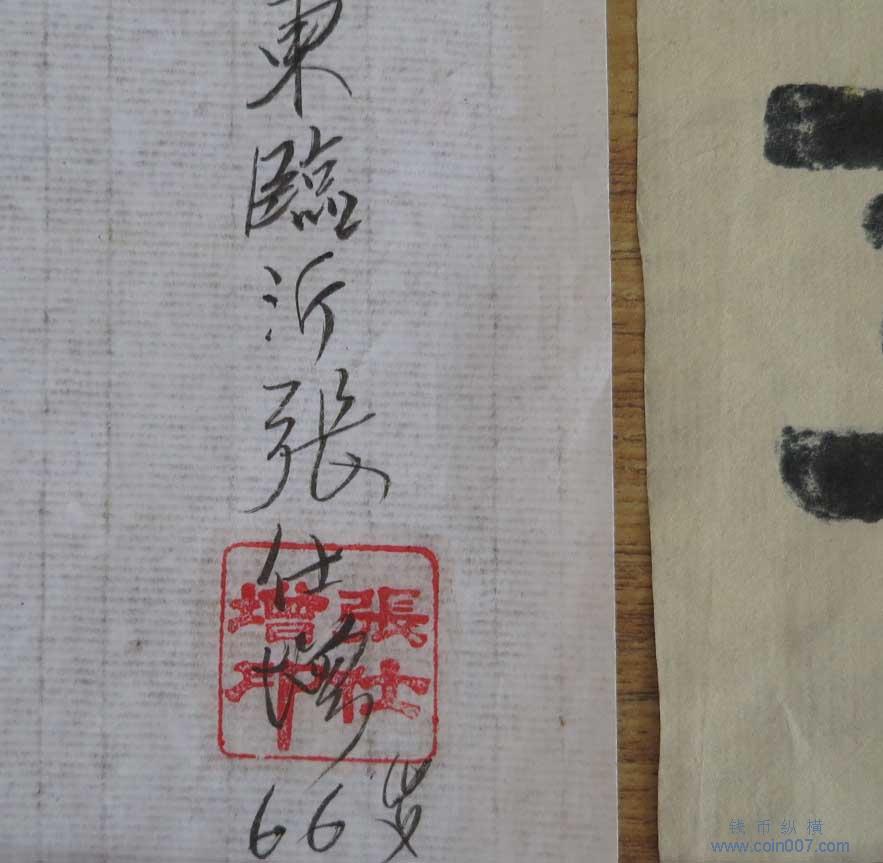 東臨沂張仕增
66岁
張仕
增印
钱币纵横
www.coin007.com